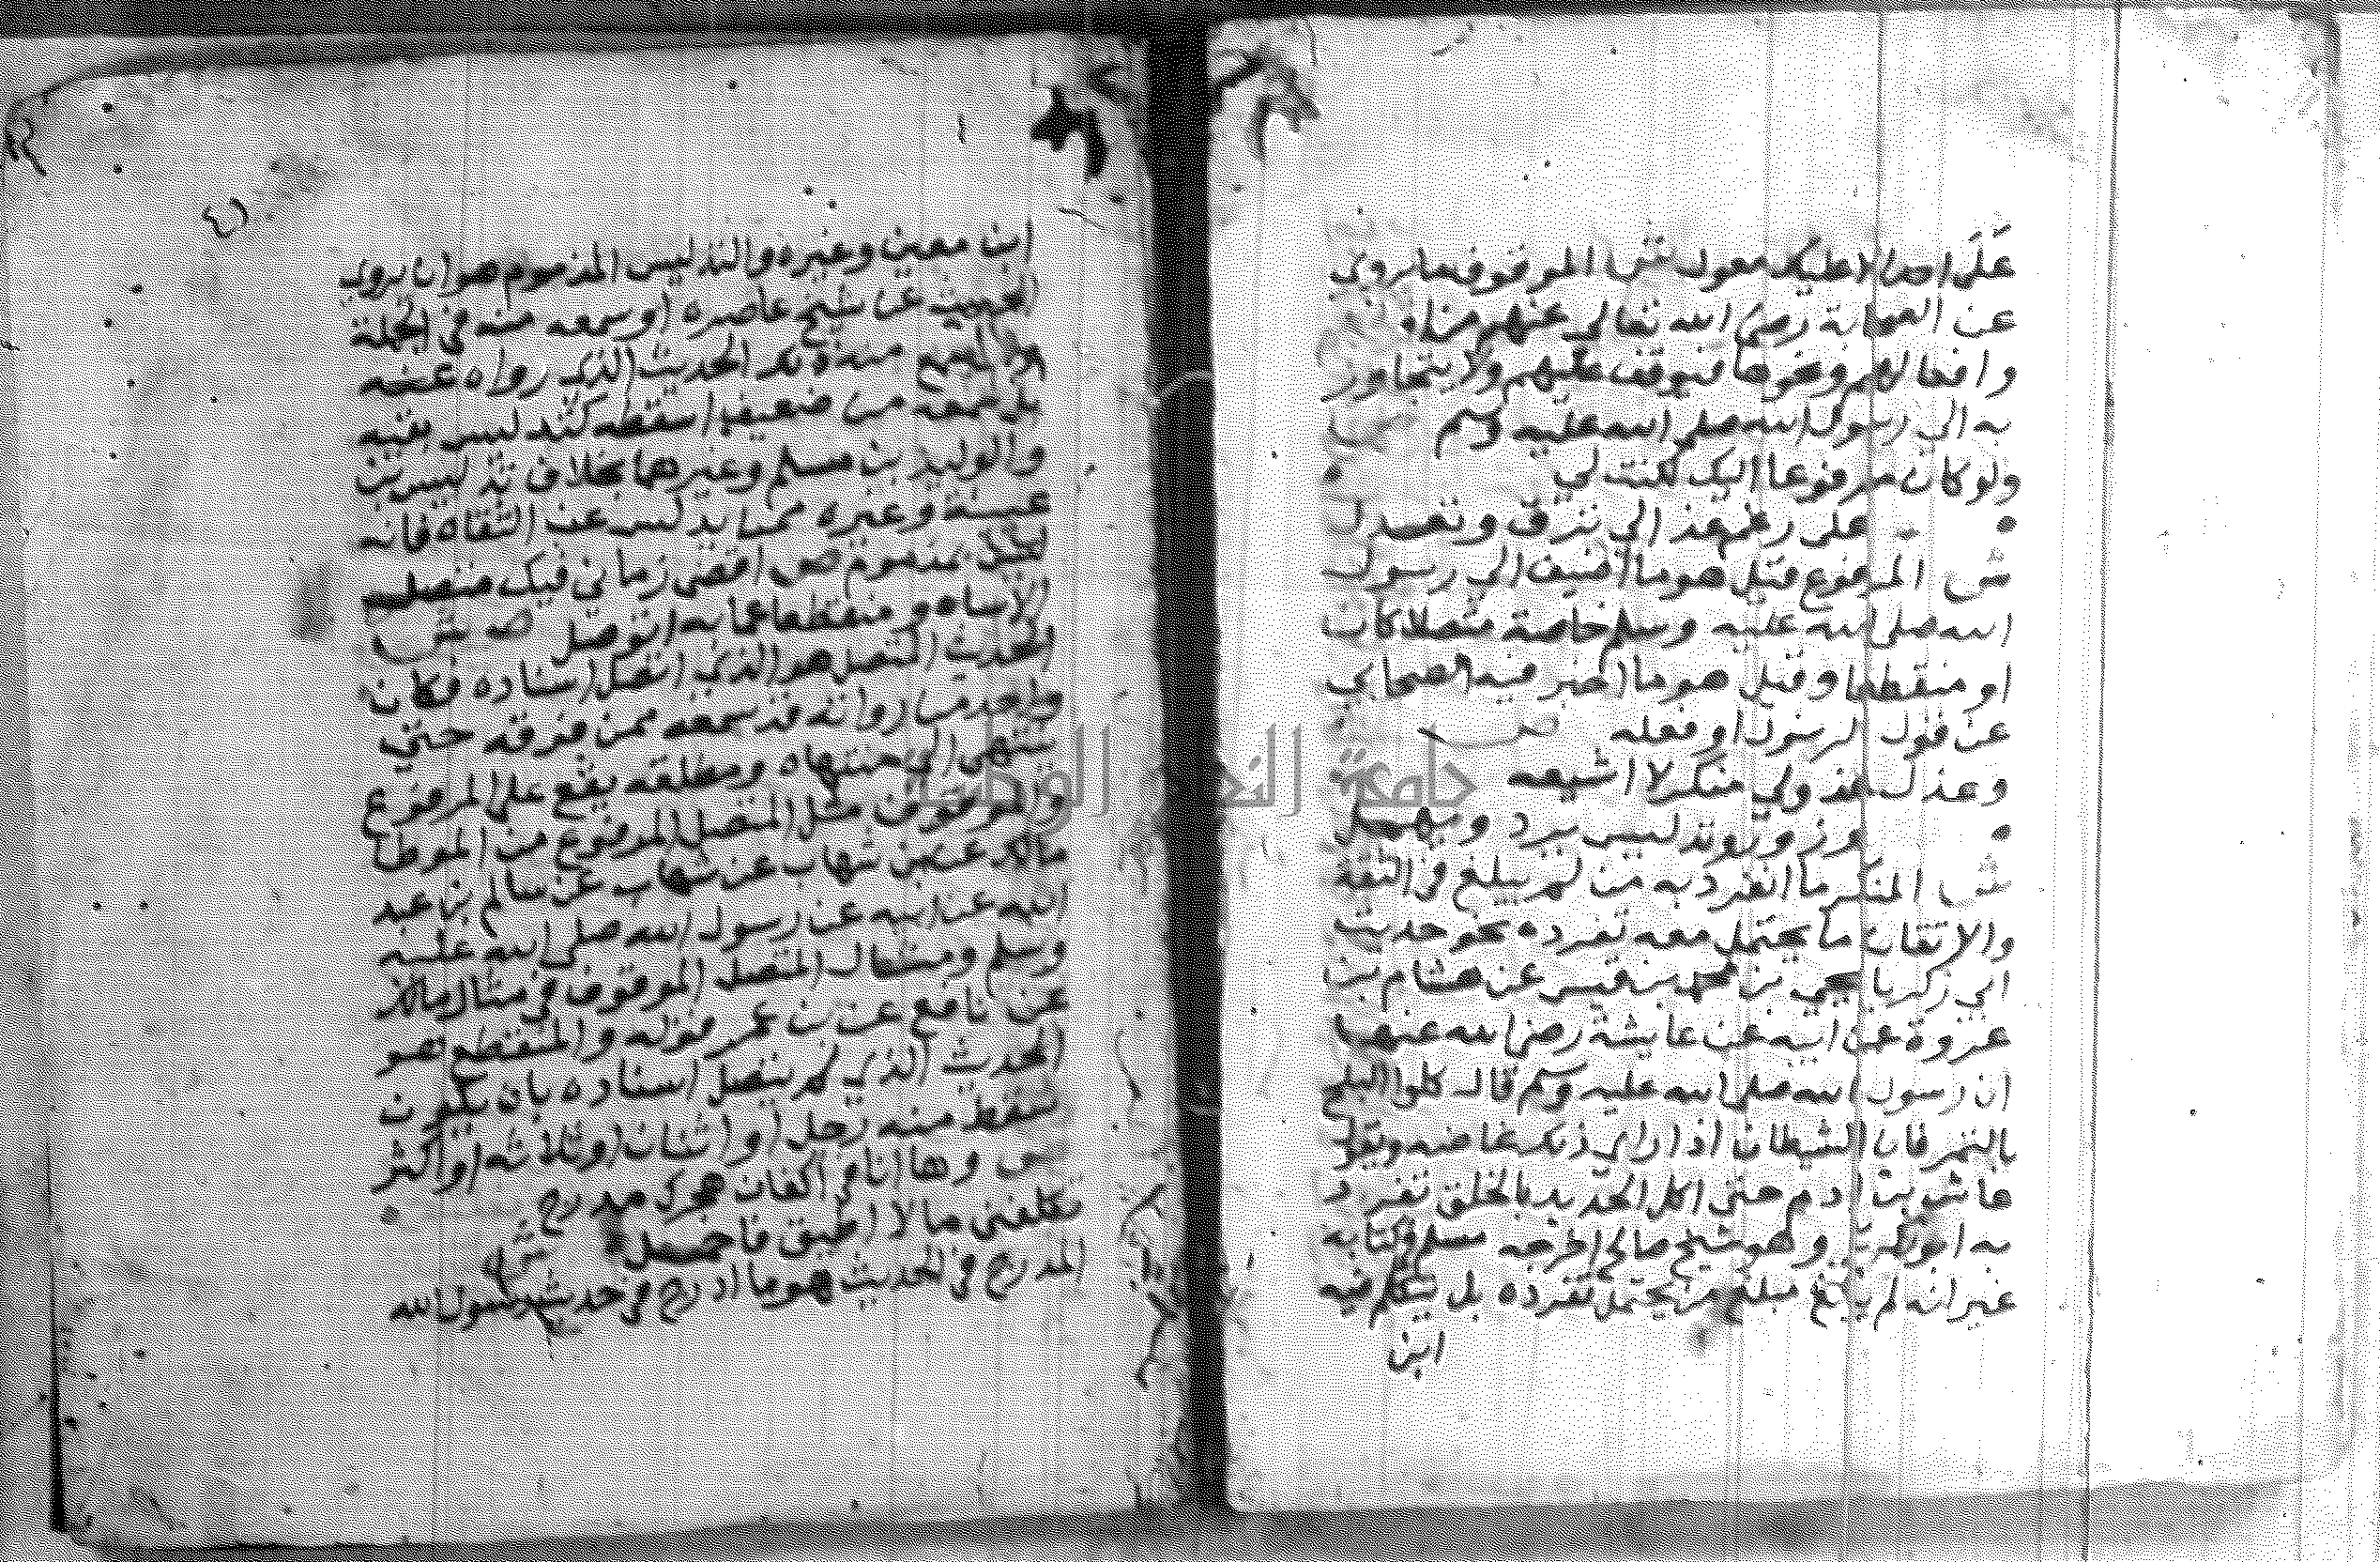 على احد الا عليك معول ش الموقوف ما روى
عن الصحابة رضي الله تعالى عنهم من
وافعالهم ونحوها فيوقف عليهم ولا يتجاوز
به الى رسول الله صلى الله عليه وسلم ص
ولو كان مرفوعا اليك لكنت لي
على رغم عذالي ترق وتعدل
ش المرفوع قيل هو ما اضيف الي رسول
الله صلى الله عليه وسلم خاصة متصلا كان
او منقطعا وقيل هو ما اخبر فيه الصحابي
عن قول الرسول او فعله ص
وعذل عذولي منكر لا اسيغه
وزور وتدليس يرد ويهمل
ش المنكر ما انفرد به من لم يبلغ في الثقة
والاتقان ما يحتمل معه تفرده نحو حديث
ابي زكريا يحيى بن محمد بن قيس عن هشام بن
عروة عن ابيه عن عايشة رضي الله عنها
ان رسول الله صلى الله عليه وسلم قال كلوا البلح
بالتمر فان الشيطان اذا راي ذلك غاضه ويقول
عاش بن ادم حتى اكل الجديد بالخلق تفرد
به ابو زكريا وهو شيخ صالح اخرجه مسلم في كتابه
غير انه لم يبلغ مبلغ من يحتمل تفرده بل تكلم فيه
ابن
٤١
ابن معين وغيره والتدليس المذموم هو ان يروي
الحديث عن شيخ عاصره او سمعه منه في الجملة
ولم يسمع منه ذلك الحديث الذي رواه عنه
بل سمعه من ضعيف اسقطه كتدليس بقيه
والوليد بن مسلم وغيرهما بخلاف تدليس بن
عيينة وغيره ممن يدلس عن الثقاه فانه
ليس بمذموم ص اقضي زماني فيك متصل
الاساه ومنقطعا عما به اتوصل ش
الحديث المتصل هو الذي اتصل اسناده فكان
واحد من رواته قد سمعه ممن فوقه حتي
ينتهى الي منتهاه ومطلقه يقع على المرفوع
والموقوف مثل المتصل المرفوع من الموطا
مالك عن بن شهاب عن سالم بن عبد
الله عن ابيه عن رسول الله صلى الله عليه
وسلم ومثال المتصل الموقوف في مثال مالك
عن نافع عن بن عمر قوله والمنقطع هو
الحديث الذي لم يتصل اسناده بان يكون
سقط منه رجل او اثنان او ثلاثه او اكثر
ص وها انا في اكفان هجرك مدرج
تكلفني ما لا اطيق فاحمل ش
المدرج في الحديث هو ما ادرج في حديث رسول الله
جامعة النجاح الوطنية